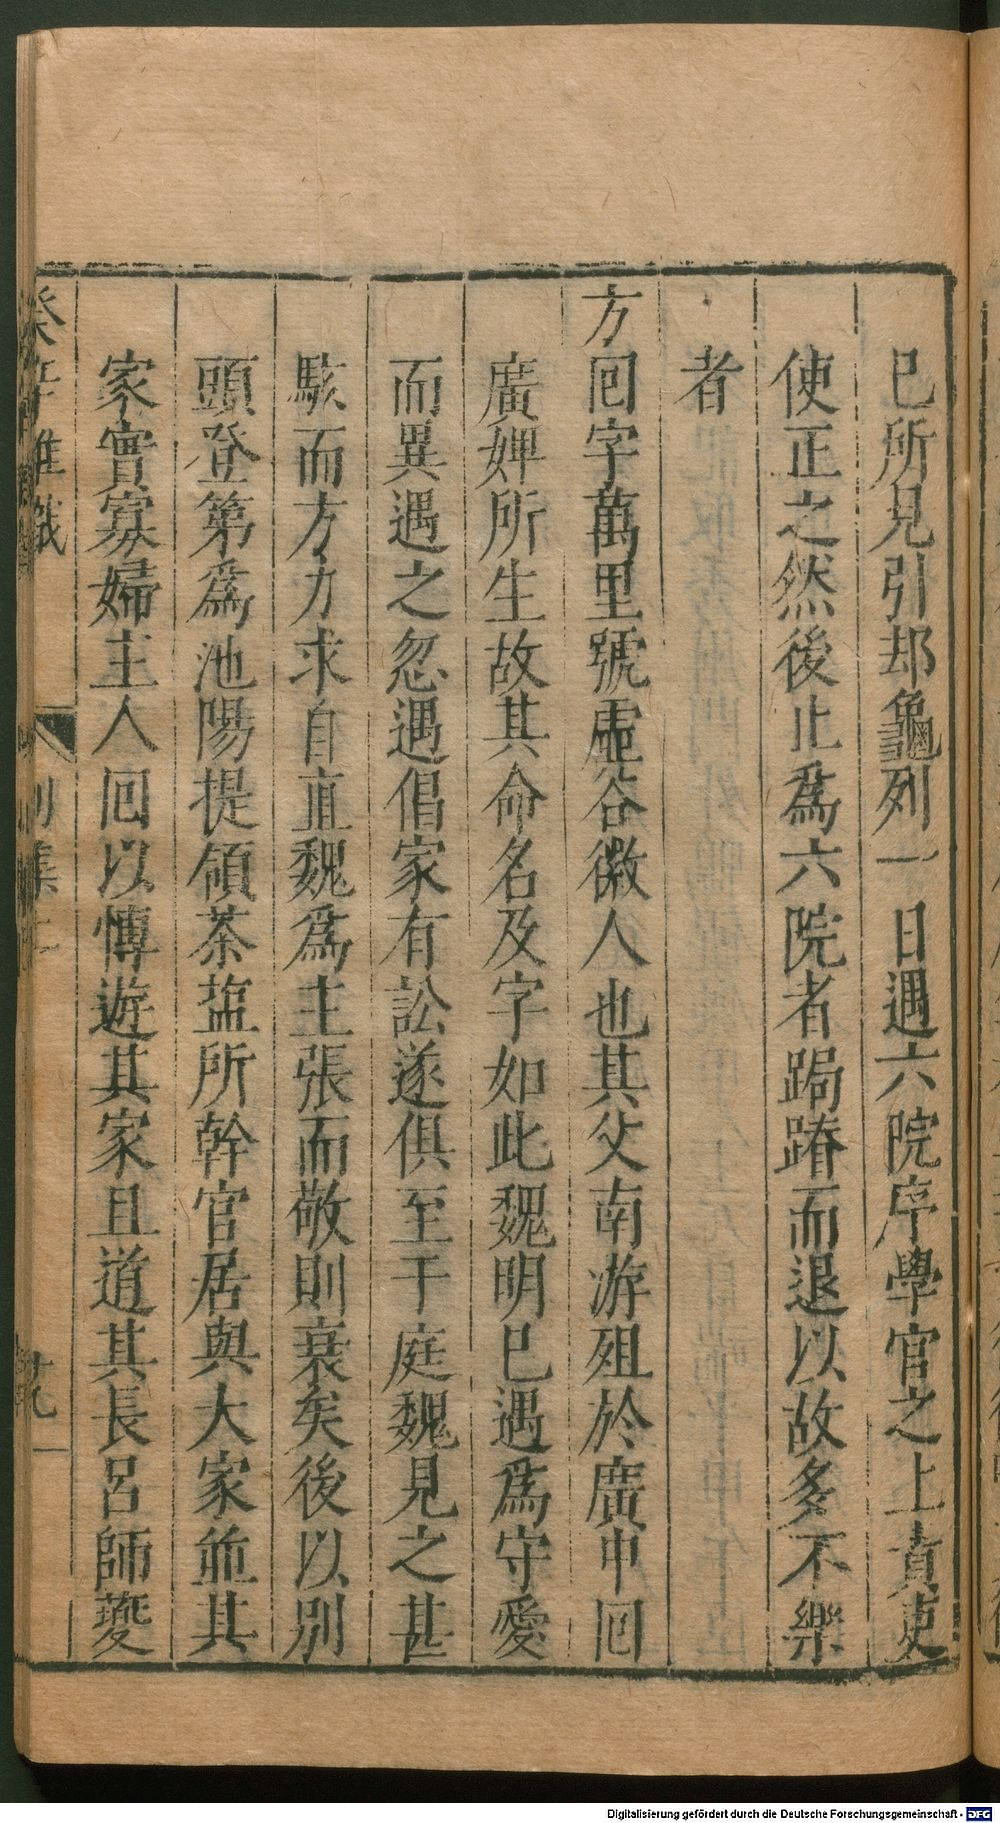 已所見引却龜列一日遇六院序學官之上責吏
使正之然後止爲六院者跼蹐而退以故多不樂
者
方回字萬里號虛谷徽人也其父南游殂於廣中回
廣婢所生故其命名及字如此魏明已遇爲守愛
而異遇之忽遇倡家有訟遂俱至于庭魏見之甚
駭而方力求自直魏爲主張而敬則衰矣後以別
頭登第爲池陽提領茶塩所幹官居與大家並其
家實寡婦主人回以慱遊其家且道其長呂師夔
癸辛雜識
別集上
十九
Digitalisierung gefördert durch die Deutsche Forschungsgemeinschaft - DFG